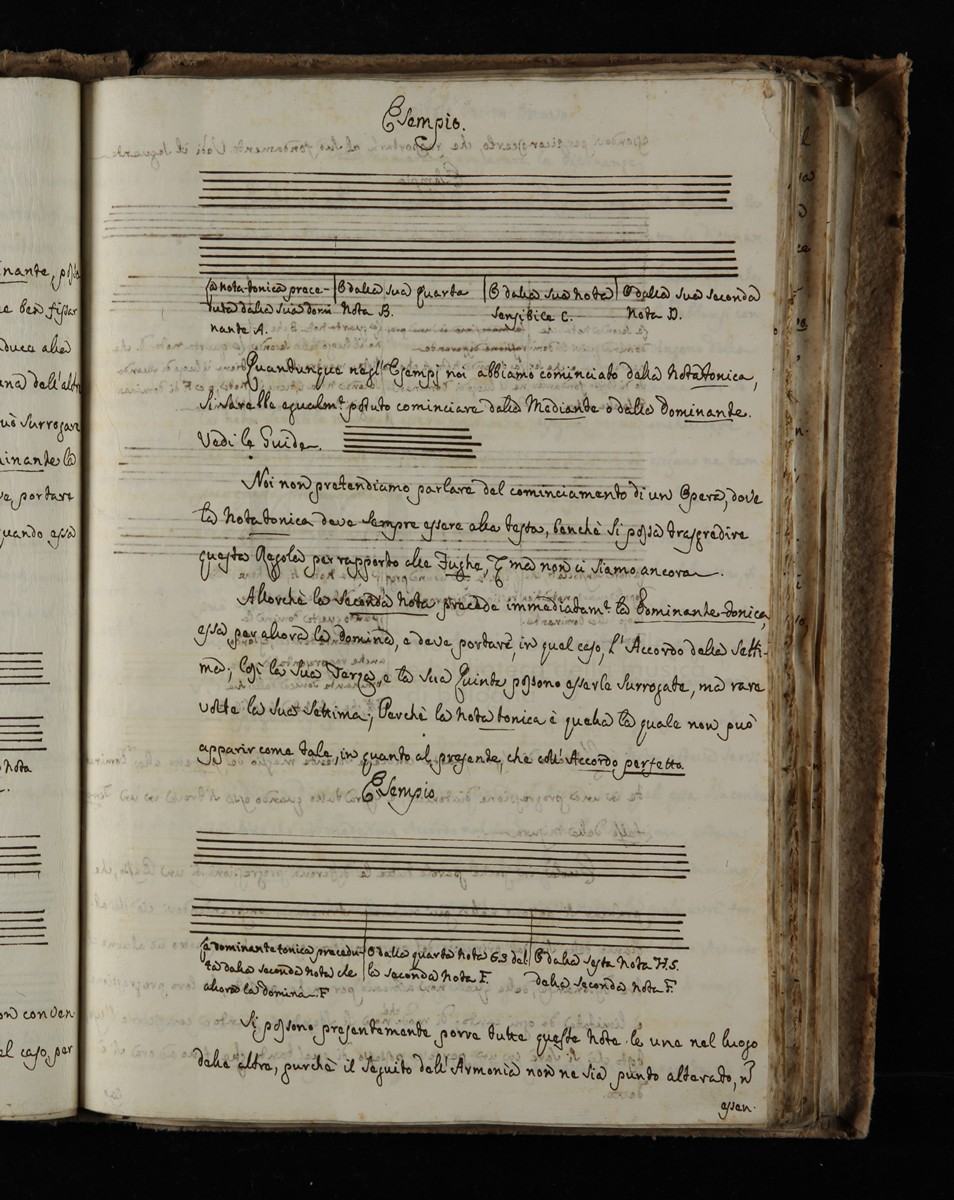 Esempio.
La nota tonica prece- O dalla sua quarta O dalla sua nota O dalla sua seconda
duta dalla sua domi nota B. sensibile C. nota D.
nante A.
Quandunque negl' Esempj noi abbiamo cominciato dalla Nota tonica,
si sarebbe egualmt. potuto cominciare dalla Mediante o dalla dominante.
Vedi le Guide.
Noi non pretendiamo parlare del cominciamento di un Opera, dove
la Nota tonica deve sempre essere alla testa, benchè si possa trasgredire
questa Regola per rapporto alle Fughe, ma non ci siamo ancora.
Allorchè la seconda Nota precede immediatamt. la Dominante-tonica,
essa per allora la domina, e deve portare, in qual caso, l'Accordo della Setti-
ma; Così la sua Terza, e la sua Quinta possono esserle surrogate, ma rare
volte la sua Settima; Perchè la nota tonica è quella la quale non può
apparir come tale, in quanto al presente, che coll'Accordo perfetto.
Esempio
La dominante tonica precedu- O dalla quarta Nota G3 del O dalla sesta Nota H.5.
ta dalla seconda nota che la seconda Nota F. della seconda Nota F.
allora la domina F
Si possono presentemente porre tutte queste note le une nel luogo
delle altre, purchè il seguito dell'Armonia non ne sia punto alterato, n
essen-
inante, può
e ben fissar
duca alla
una dell'altr
uò surrogar
inante la
ve, portare
quando essa
nota
on conven
el caso, per